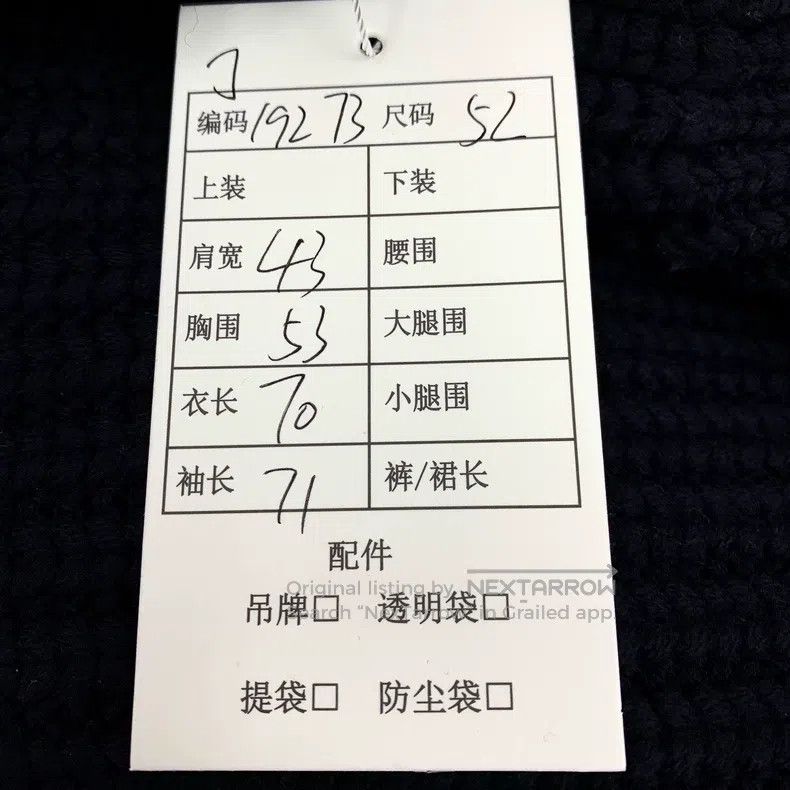 编码 19273 尺码 52
上装 下装
肩宽 43 腰围
胸围 53 大腿围
衣长 70 小腿围
袖长 71 裤/裙长
配件
Original listing by NEXTARROW
吊牌□ 透明袋□
Search "NextArrow" in Grailed app.
提袋□ 防尘袋□